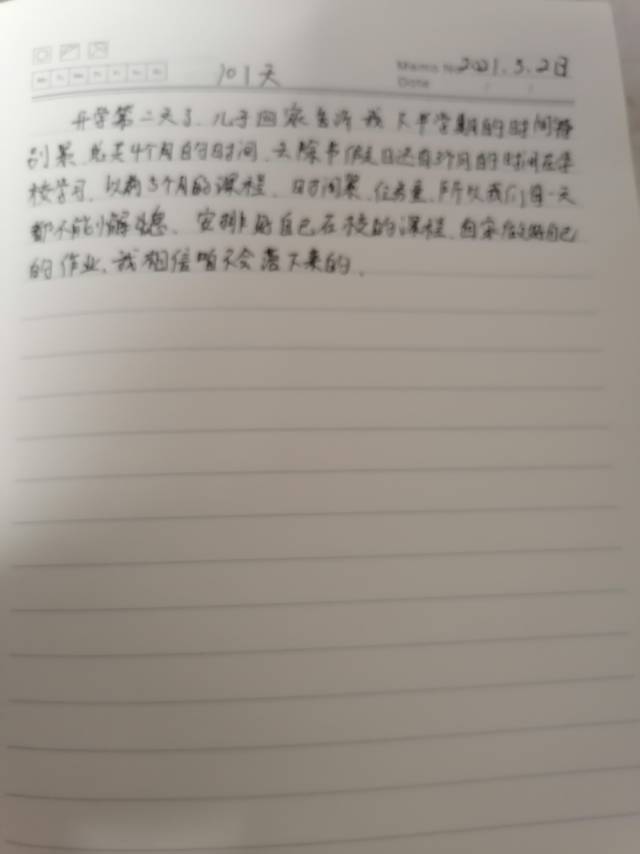 101天
Memo No. 2021.3.2日
Date
开学第二天了、儿子回家告诉我下半学期的时间特
别紧、总共4个月的时间、去除节假日还有3个月的时间在学
校学习、以前5个月的课程、时间紧、任务重、所以我们每一天
都不能小懈怠、安排好自己在校的课程、回家做好自己
的作业、我相信咱不会落下来的、